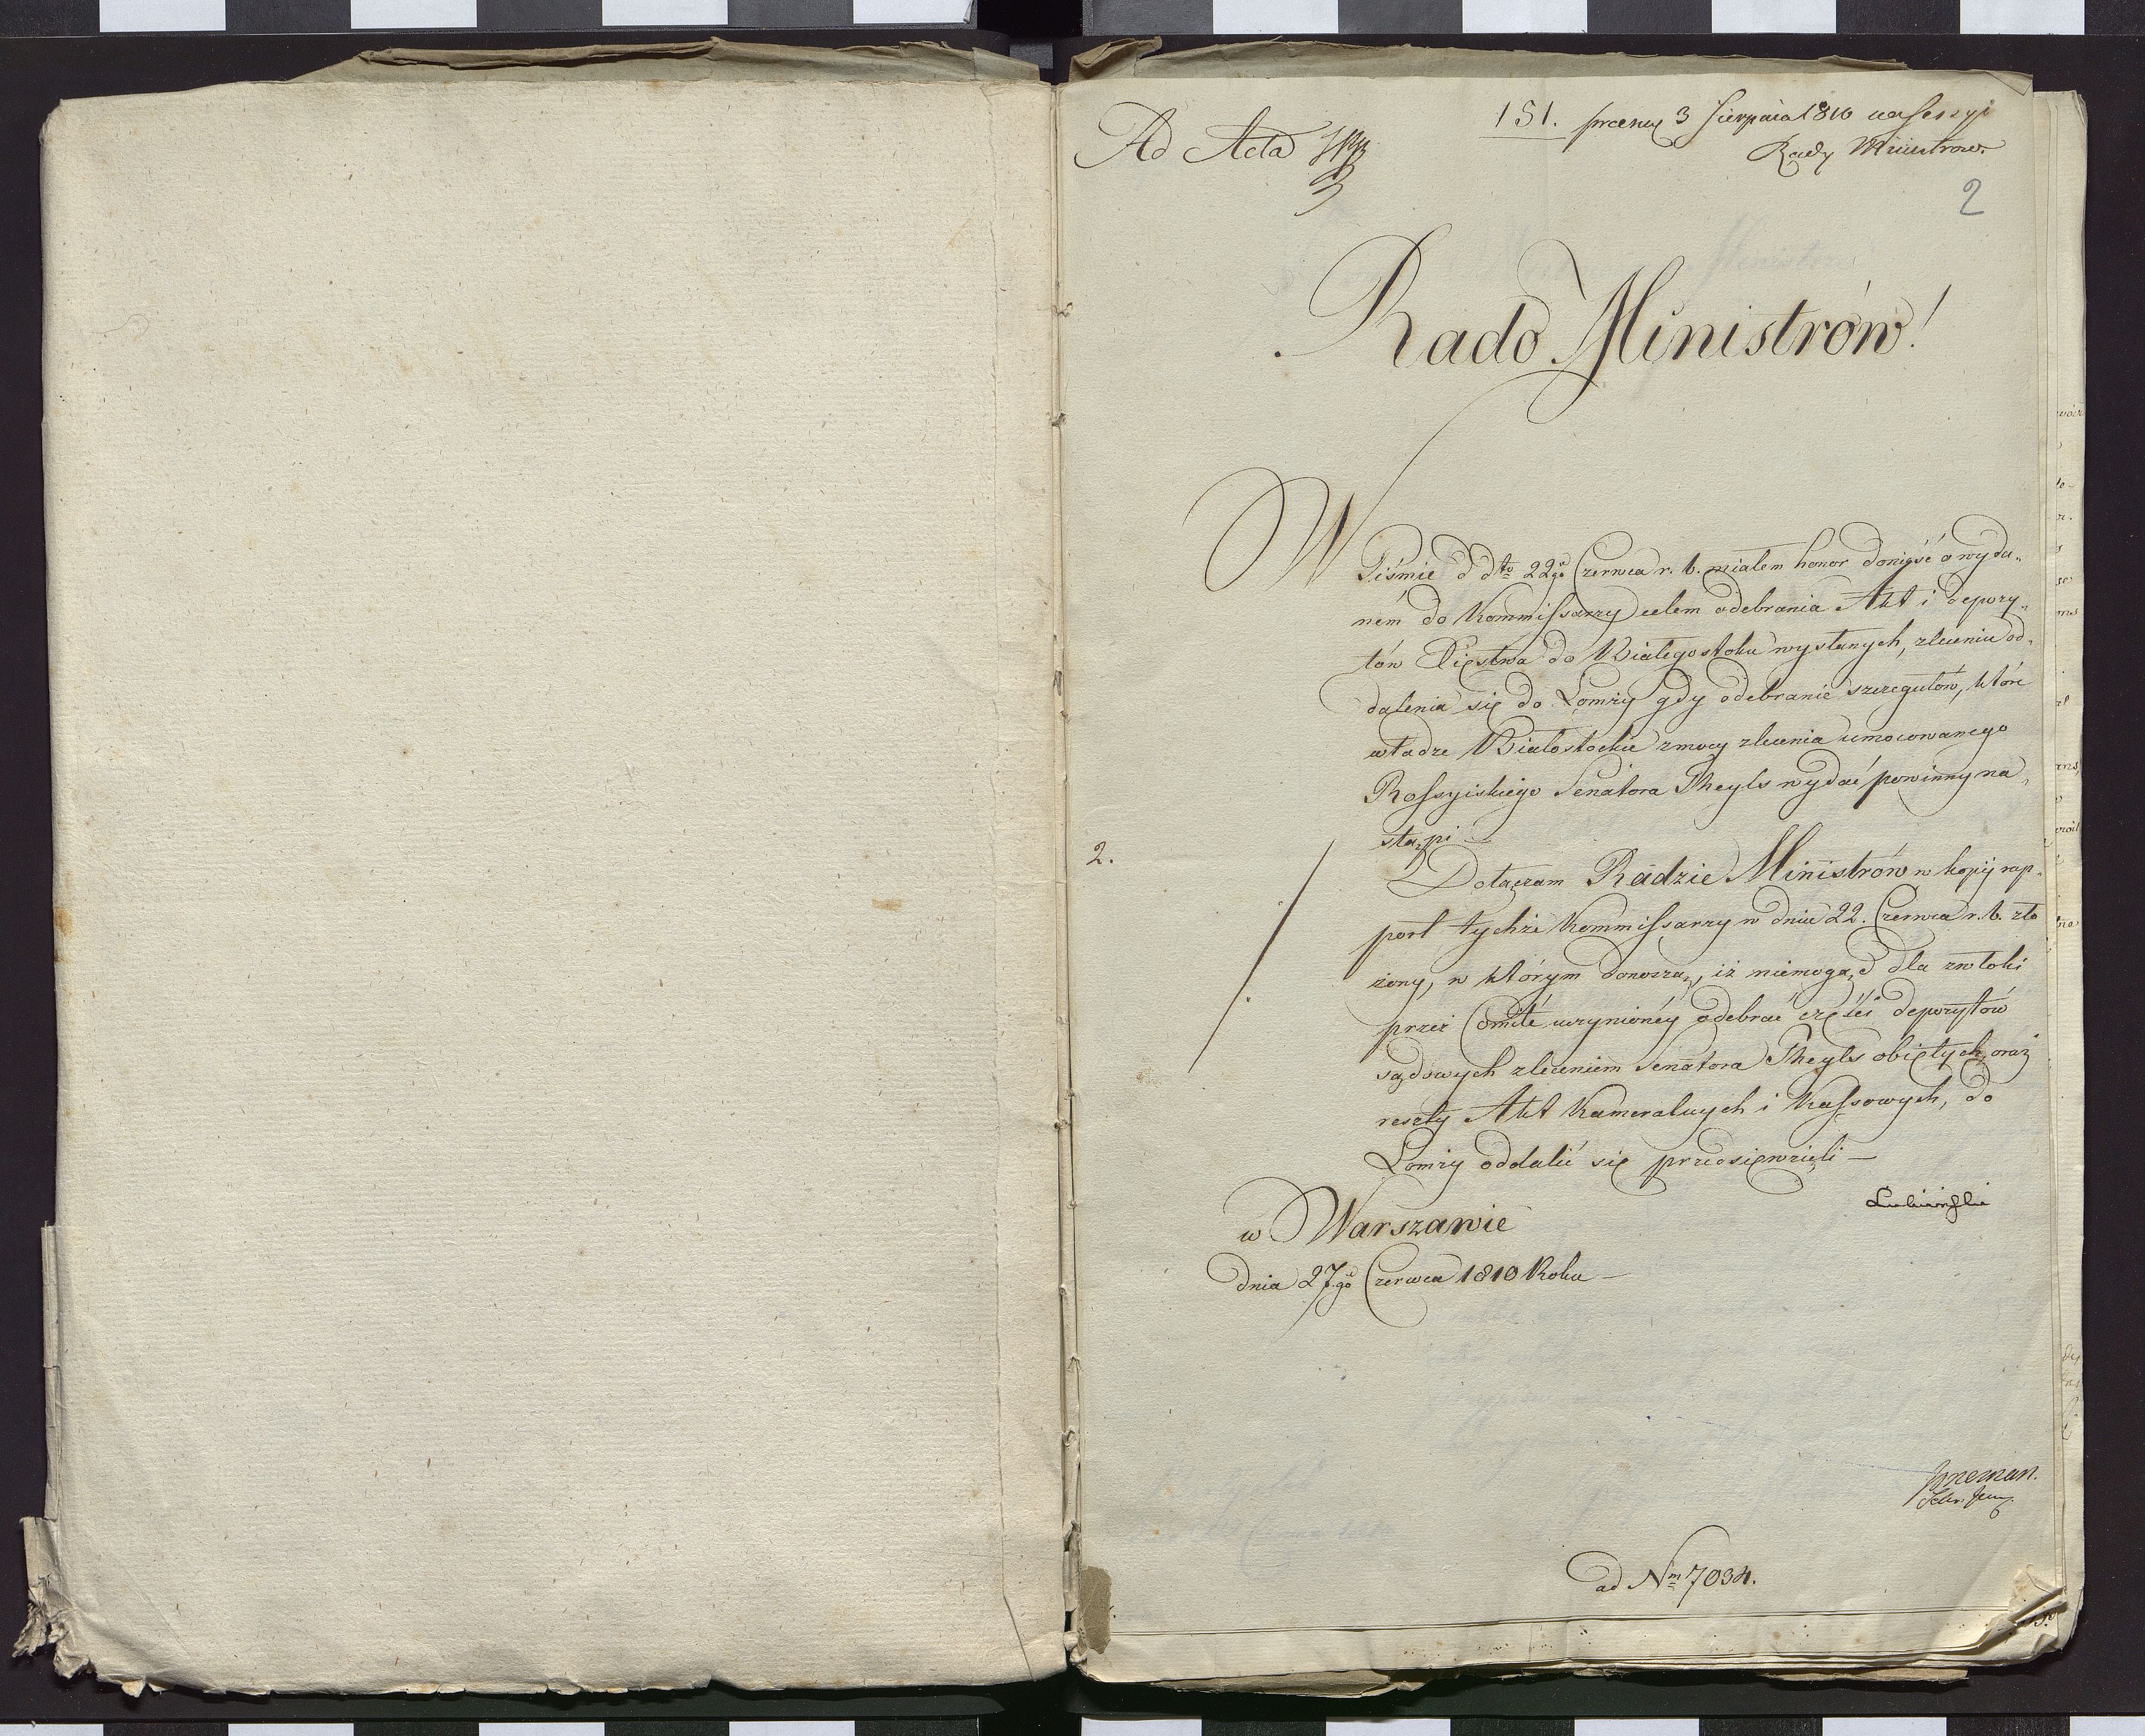 Ad Acta
151. praes. 3 Sierpnia 1810 na Sessyi
Rady Ministrow.
2
Rado Ministrów!
W
Piśmie d dto 22go Czerwca r. b. miałem honor donieść o wyda„
ném do Kommissarzy celem odebrania Akt i depozy„
tów Xięstwa do Białegostoku wysłanych, zleceniu od„
dalenia się do Łomży gdy odebranie szczegułów, które
władze Białostockie z mocy zlecenia umocowanego
Rossyiskiego Senatora Theyls wydać powinny na„
stąpi —
2.
Dołączam Radzie Ministrów w kopij rap„
port tychże Kommissarzy w dniu 22. Czerwca r. b. zło
żony, w którym donoszą, iż niemogąc dla zwłoki
przez Comité uczynionéy odebrać części depozytów
sądowych zleceniem Senatora Theyls obiętych, oraz
reszty Akt Kameralnych i Kassowych, do
Łomży oddalić się przedsięwzieli —
Łubieński
w Warszawie
dnia 27go Czerwca 1810 Roku —
ad Nm 7034.